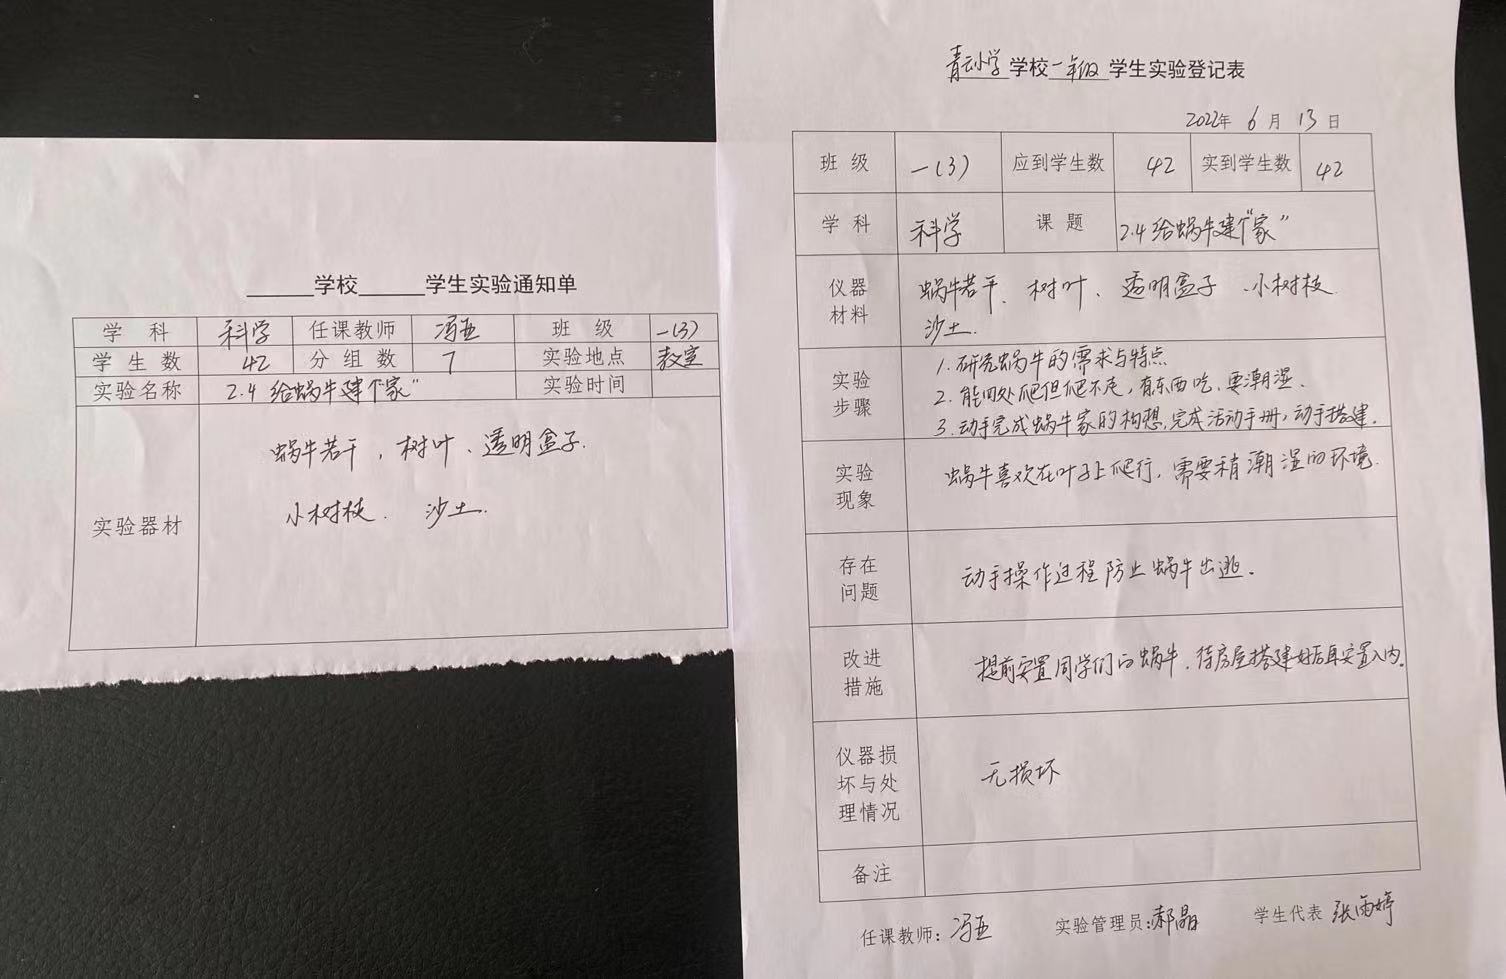 ______学校______学生实验通知单
学 科 科学 任课教师 冯亚 班 级 一(3)
学 生 数 42 分 组 数 7 实验地点 教室
实验名称 2.4 给蜗牛建个"家" 实验时间
实验器材
蜗牛若干，树叶、透明盒子.
小树枝. 沙土.
青云小学 学校 一年级 学生实验登记表
2022年 6 月 13 日
班 级 一(3) 应到学生数 42 实到学生数 42
学 科 科学 课 题 2.4 给蜗牛建个"家"
仪器材料
蜗牛若干、树叶、透明盒子、小树枝
沙土.
实验步骤
1. 研究蜗牛的需求与特点
2. 能四处爬但爬不走，有东西吃、要潮湿、
3. 动手完成蜗牛家的构想,完成活动手册，动手搭建.
实验现象
蜗牛喜欢在叶子上爬行，需要稍潮湿的环境.
存在问题
动手操作过程防止蜗牛出逃.
改进措施
提前安置同学们的蜗牛、待房屋搭建好后再安置入内.
仪器损坏与处理情况
无损坏
备注
任课教师：冯亚 实验管理员:郝晶 学生代表 张雨婷